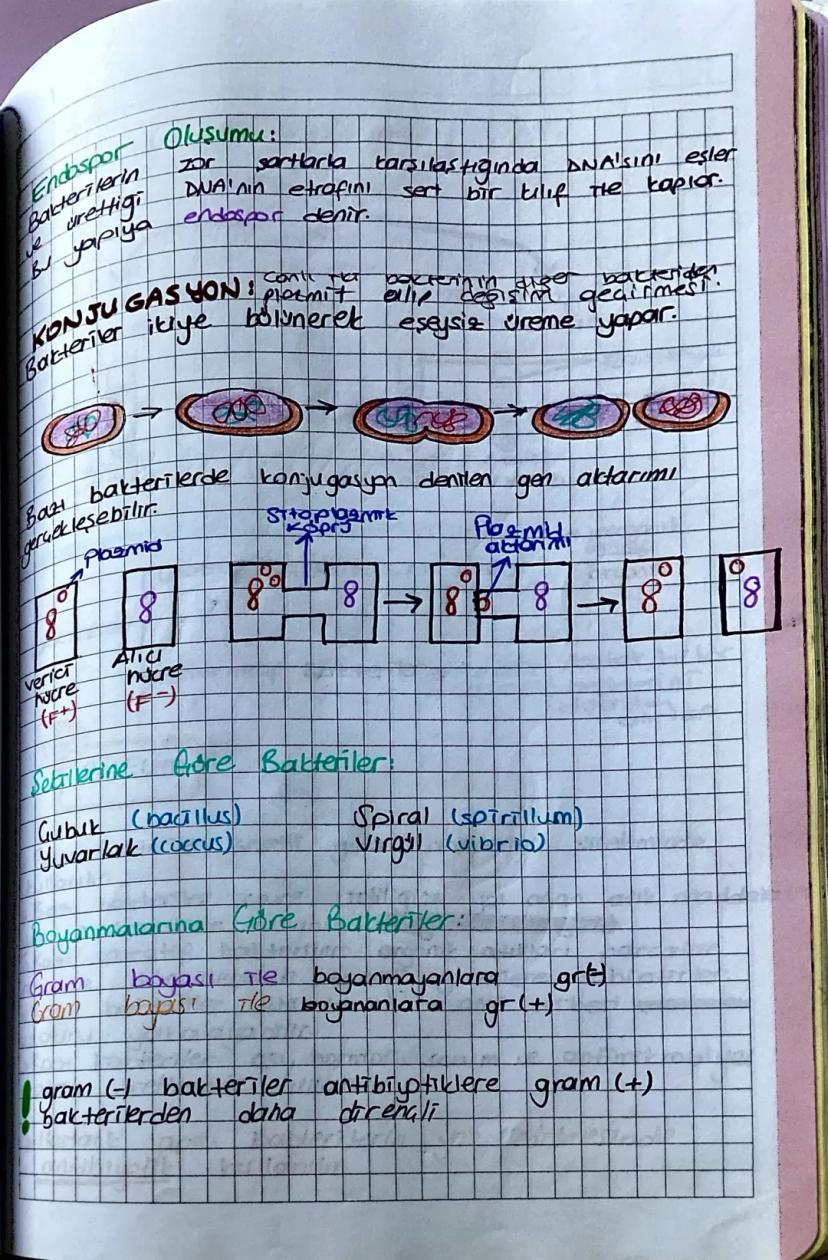 Endospor Oluşumu:
Bakterilerin zor şartlarla karşılaştığında DNA'sını eşler
ve ürettiği DNA'nın etrafını sert bir kılıf ile kaplar.
Bu yapıya endospor denir.
KONJUGASYON: canlı iki bakterinin diğer bakteriden
plazmit alıp değişim geçirmesi.
Bakteriler ikiye bölünerek eşeysiz üreme yapar.
Bazı bakterilerde konjugasyon denilen gen aktarımı
gerçekleşebilir.
Plazmid
Sitoplazmik
köprü
Plazmid
aktarımı
verici
hücre
(F+)
Alıcı
hücre
(F-)
Şekillerine Göre Bakteriler:
Çubuk (bacillus) Spiral (spirillum)
Yuvarlak (coccus) Virgül (vibrio)
Boyanmalarına Göre Bakteriler:
Gram boyası ile boyanmayanlara gr(-)
Gram boyası ile boyananlara gr(+)
! gram (-) bakteriler antibiyotiklere gram (+)
bakterilerden daha dirençli